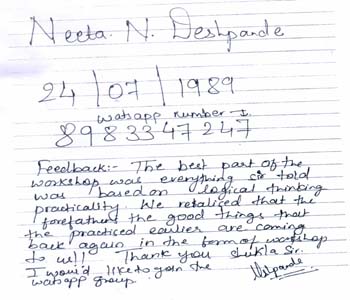 Neeta. N. Deshpande
24 | 07 | 1989
watsapp number-I.
8983347247
Feedback:- The best part of the
workshop was everything sir told
was based on logical thinking
practicality We realized that the
forefathers the good things that
the practiced earlier are coming
back again in the form of workshop
to us!! Thank you Shukla Sir.
I would like to join the
watsapp group.